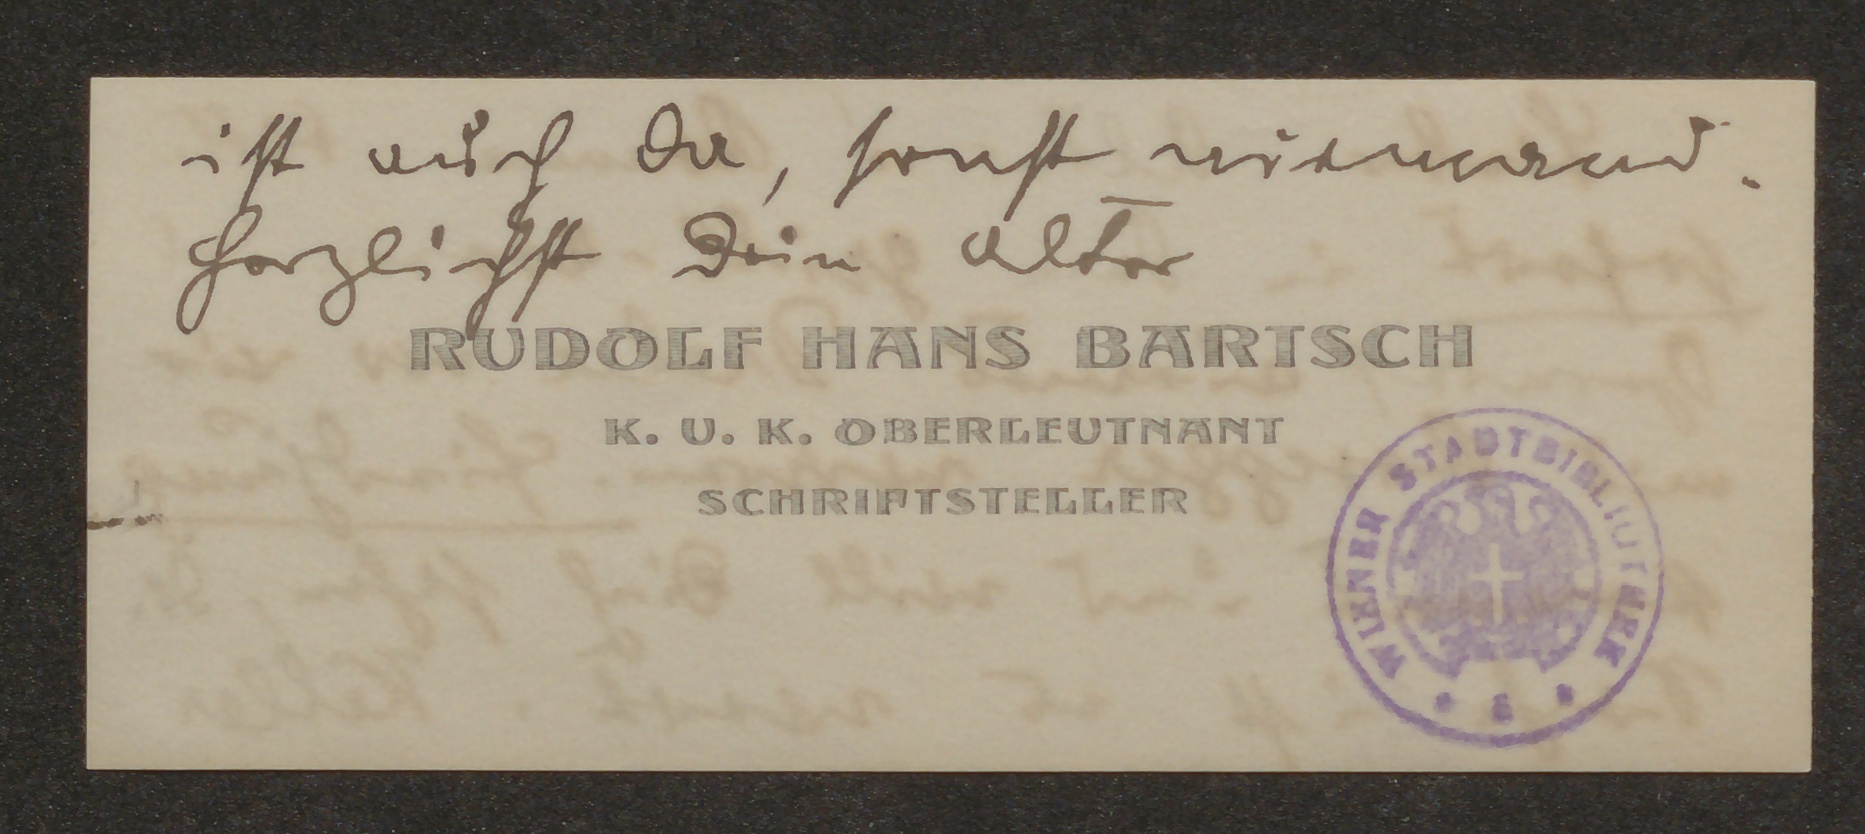 ist auch da, sonst niemand.
Herzlichst Dein alter
RUDOLF HANS BARTSCH
K. U. K. OBERLEUTNANT
SCHRIFTSTELLER
WIENER STADTBIBLIOTHEK